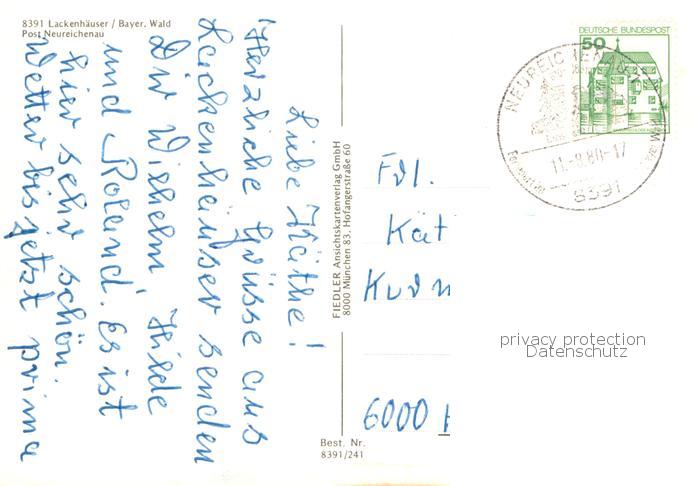 8391 Lackenhäuser / Bayer. Wald
Post Neureichenau
Liebe Käthe!
Herzliche Grüsse aus
Lackenhäuser senden
Dir Wilhelm Hilde
und Roland. Es ist
hier sehr schön.
Wetter bis jetzt prima
FIEDLER Ansichtskartenverlag GmbH
8000 München 83, Hofangerstraße 60
Best. Nr.
8391/241
DEUTSCHE BUNDESPOST
50
NEUREICHENAU 1
11.-8.80-17
8391
Frl.
Kät
6000
privacy protection
Datenschutz